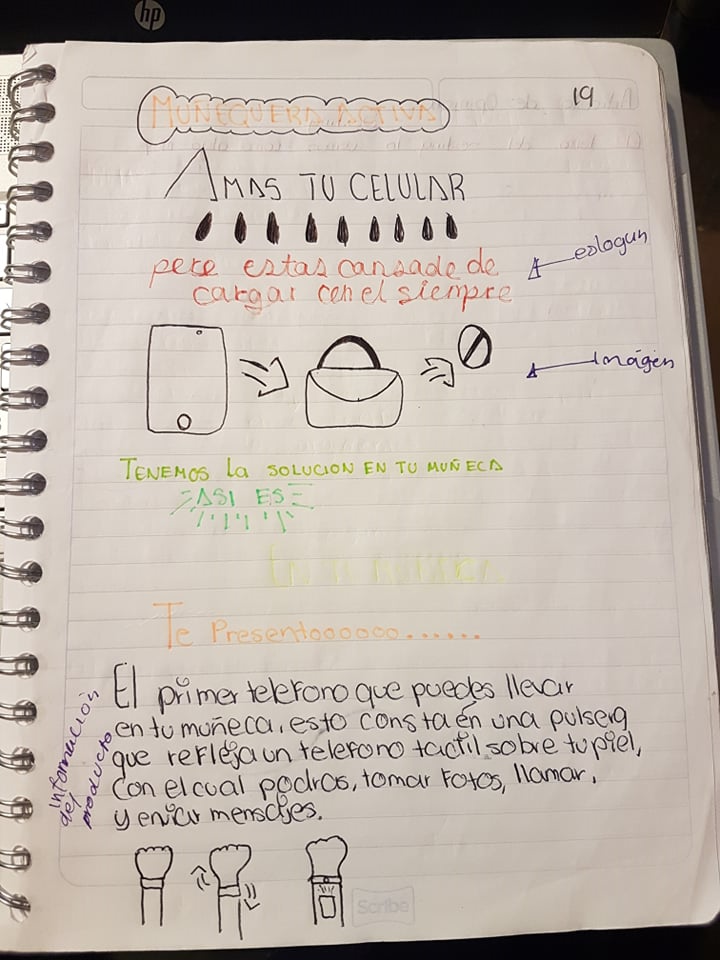 hp
19
MUÑEQUERA ACTIVA
AMAS TU CELULAR
pero estas cansado de
cargar con el siempre
eslogun
Imágen
TENEMOS la SOLUCION EN TU MUÑECA
ASI ES
EN TU MUÑECA
Te Presentoooooo......
información
del
producto
El primer telefono que puedes llevar
en tu muñeca, esto consta en una pulsera
que refleja un telefono tactil sobre tu piel,
con el cual podras, tomar fotos, llamar,
y enviar mensajes.
Scribe